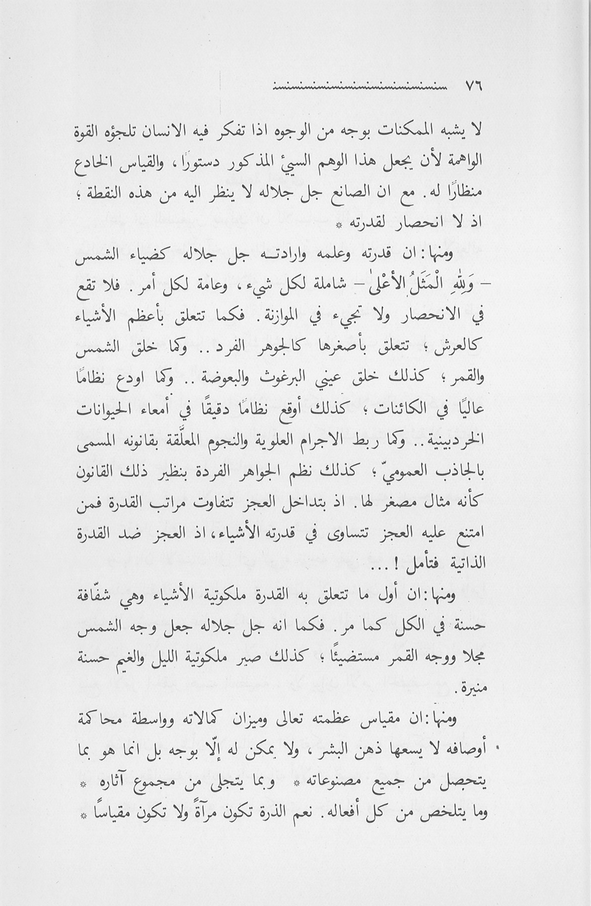 ٧٦
لا يشبه الممكنات بوجه من الوجوه اذا تفكر فيه الانسان تلجؤه القوة
الواهمة لأن يجعل هذا الوهم السيئ المذكور دستورًا، والقياس الخادع
منظارًا له. مع ان الصانع جل جلاله لا ينظر اليه من هذه النقطة ؛
اذ لا انحصار لقدرته *
ومنها: ان قدرته وعلمه وارادتـه جل جلاله كضياء الشمس
– وَلِلّٰهِ الْمَثَلُ الأَعْلىٰ – شاملة لكل شيء، وعامة لكل أمر. فلا تقع
في الانحصار ولا تجيء في الموازنة. فكما تتعلق بأعظم الأشياء
كالعرش ؛ تتعلق بأصغرها كالجوهر الفرد .. وكما خلق الشمس
والقمر ؛ كذلك خلق عيني البرغوث والبعوضة .. وكما اودع نظامًا
عاليًا في الكائنات ؛ كذلك أوقع نظامًا دقيقًا في أمعاء الحيوانات
الخردبينية .. وكما ربط الاجرام العلوية والنجوم المعلَّقة بقانونه المسمى
بالجاذب العموميّ ؛ كذلك نظم الجواهر الفردة بنظير ذلك القانون
كأنه مثال مصغر لها. اذ بتداخل العجز تتفاوت مراتب القدرة فمن
امتنع عليه العجز تتساوى في قدرته الأشياء، اذ العجز ضد القدرة
الذاتية فتأمل ! ...
ومنها: ان أول ما تتعلق به القدرة ملكوتية الأشياء وهي شفّافة
حسنة في الكل كما مر. فكما انه جل جلاله جعل وجه الشمس
مجلا ووجه القمر مستضيئًا ؛ كذلك صير ملكوتية الليل والغيم حسنة
منيرة.
ومنها: ان مقياس عظمته تعالى وميزان كمالاته وواسطة محاكمة
أوصافه لا يسعها ذهن البشر ، ولا يمكن له إلّا بوجه بل انما هو بما
يتحصل من جميع مصنوعاته * وبما يتجلى من مجموع آثاره *
وما يتلخص من كل أفعاله. نعم الذرة تكون مرآةً ولا تكون مقياسًا *